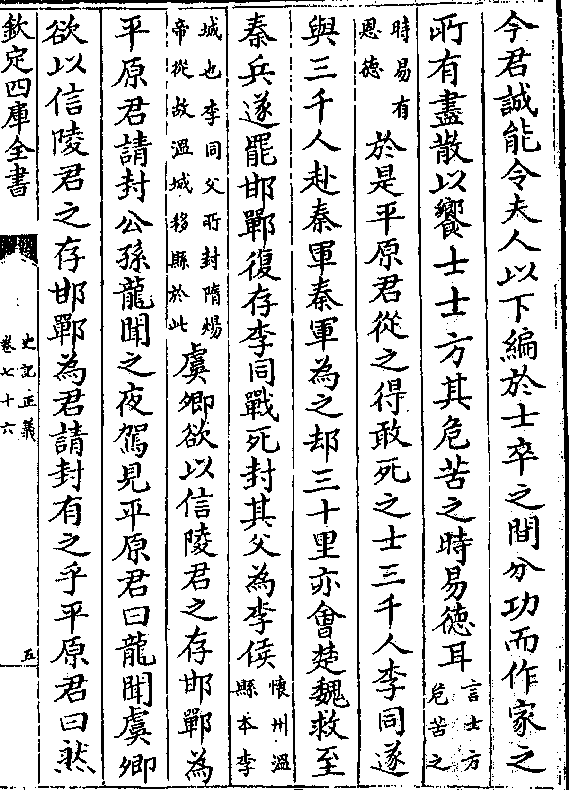 今君誠能令夫人以下編於士卒之間分功而作家之
所有盡散以饗士士方其危苦之時易德耳言士方危苦之
時易有恩德於是平原君從之得敢死之士三千人李同遂
與三千人赴秦軍秦軍為之却三十里亦會楚魏救至
秦兵遂罷邯鄲復存李同戰死封其父為李侯懷州溫縣本李
城也李同父所封隋煬帝從故溫城移縣於此虞卿欲以信陵君之存邯鄲為
平原君請封公孫龍聞之夜駕見平原君曰龍聞虞卿
欲以信陵君之存邯鄲為君請封有之乎平原君曰然
欽定四庫全書
史記正義
卷七十六
五